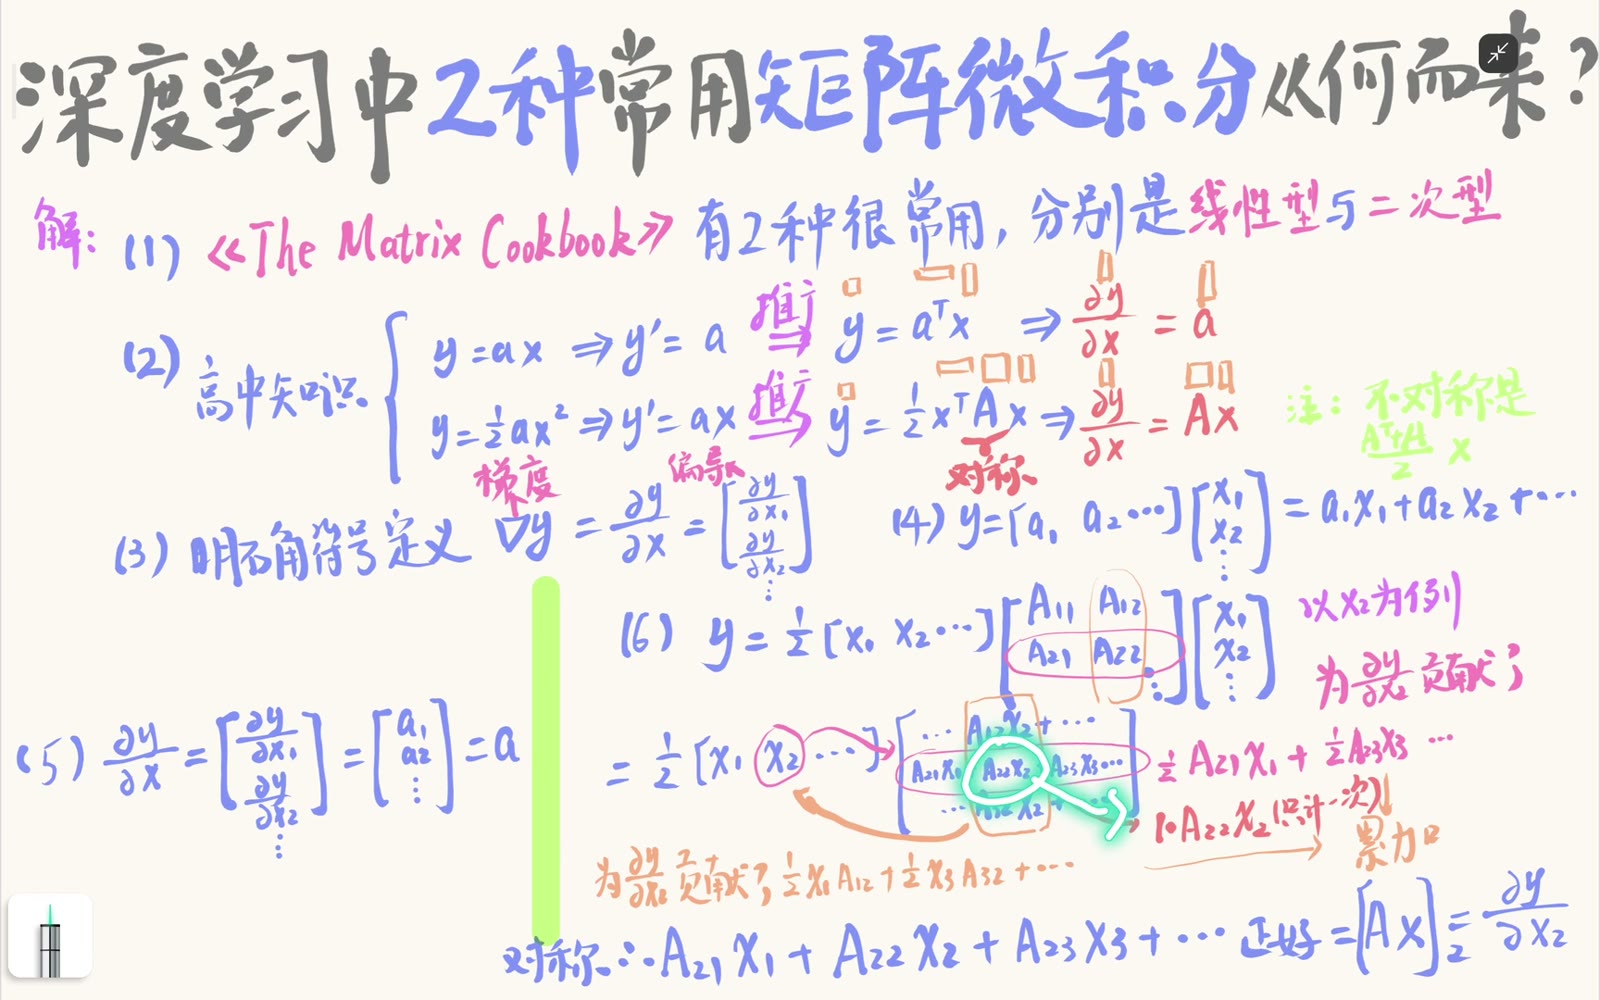 深度学习中2种常用矩阵微积分从何而来?
解: (1) 《The Matrix Cookbook》有2种很常用, 分别是线性型与二次型
(2) 高中知识
y = ax ⇒ y′ = a 推广 ⇒ y = aᵀx ⇒ ∂y/∂x = a
y = ½ax² ⇒ y′ = ax 推广 ⇒ y = ½xᵀAx ⇒ ∂y/∂x = Ax
对称
注: 不对称是 (Aᵀ+A)/2 x
(3) 明确符号定义 ∇y = ∂y/∂x = [∂y/∂x₁ ∂y/∂x₂ ⋮]
梯度 偏导
(4) y = [a₁ a₂ ⋯][x₁ x₂ ⋮] = a₁x₁ + a₂x₂ + ⋯
(5) ∂y/∂x = [∂y/∂x₁ ∂y/∂x₂ ⋮] = [a₁ a₂ ⋮] = a
(6) y = ½[x₁ x₂ ⋯][A₁₁ A₁₂ A₂₁ A₂₂ ⋱][x₁ x₂ ⋮]
以x₂为例
为∂y/∂x₂贡献了
= ½[x₁ x₂ ⋯][⋯ A₁₂x₂ + ⋯
A₂₁x₁ A₂₂x₂ A₂₃x₃ ⋯
⋯ A₃₂x₂ + ⋯]
½A₂₁x₁ + ½A₂₃x₃ ⋯
1·A₂₂x₂ (只计一次)
累加
为∂y/∂x₂贡献了½x₁A₁₂ + ½x₃A₃₂ + ⋯
对称∴A₂₁x₁ + A₂₂x₂ + A₂₃x₃ + ⋯ 正好 = [Ax]₂ = ∂y/∂x₂